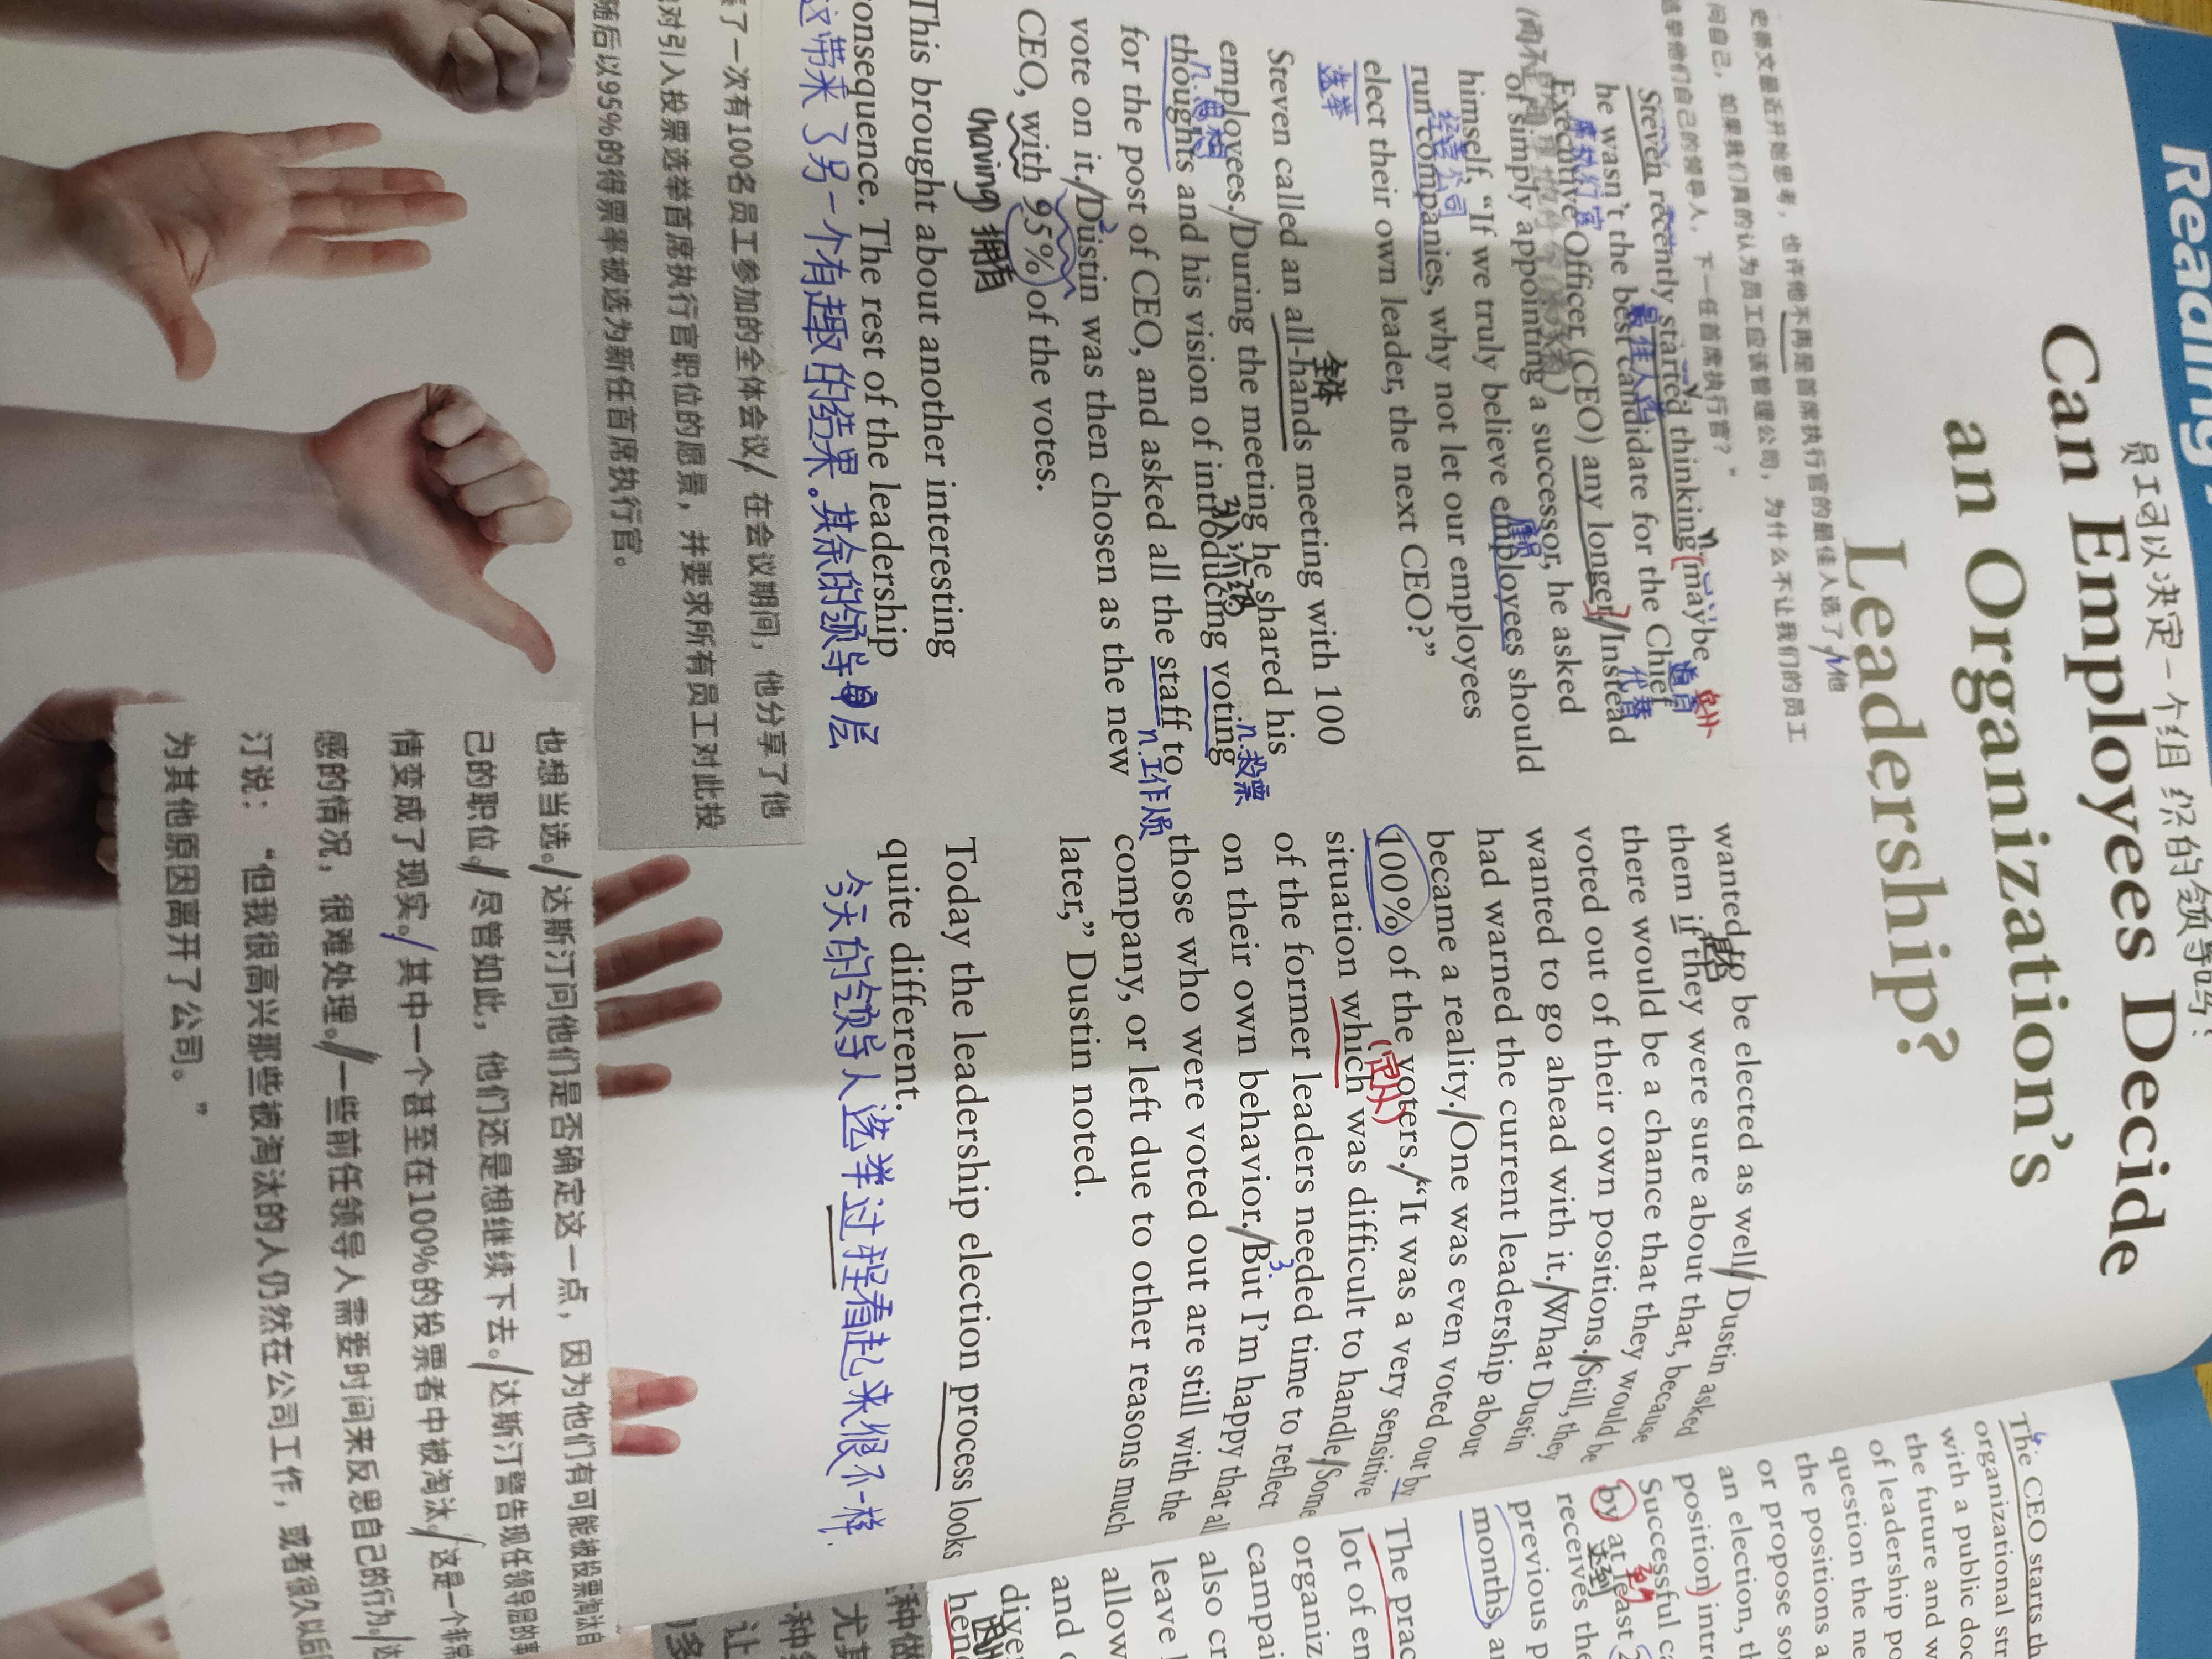 Reading
员工可以决定一个组织的领导吗?
Can Employees Decide
an Organization's
Leadership?
史蒂文最近开始思考，也许他不再是首席执行官的最佳人选了/他
问自己，如果我们真的认为员工应该管理公司，为什么不让我们的员工
选举他们自己的领导人，下一任首席执行官？”
Steven recently started thinking (maybe
he wasn't the best candidate for the Chief
最佳人选
Executive Officer (CEO) any longer)/Instead
代替
of simply appointing a successor, he asked
himself, “If we truly believe employees should
雇员
run companies, why not let our employees
经营公司
elect their own leader, the next CEO?”
选举
全体
Steven called an all-hands meeting with 100
employees./During the meeting he shared his
n.思想
thoughts and his vision of introducing voting
n.投票
for the post of CEO, and asked all the staff to
n.工作人员
vote on it./Dustin was then chosen as the new
CEO, with 95% of the votes.
(having 拥有
This brought about another interesting
consequence. The rest of the leadership
这带来了另一个有趣的结果。其余的领导层
了一次有100名员工参加的全体会议/在会议期间，他分享了他
对引入投票选举首席执行官职位的愿景，并要求所有员工对此投
随后以95%的得票率被选为新任首席执行官。
wanted to be elected as well/Dustin asked
them if they were sure about that, because
there would be a chance that they would be
voted out of their own positions./Still, they
wanted to go ahead with it./What Dustin
had warned the current leadership about
became a reality./One was even voted out by
100% of the voters./“It was a very sensitive
situation which was difficult to handle/Some
of the former leaders needed time to reflect
on their own behavior./But I'm happy that all
those who were voted out are still with the
company, or left due to other reasons much
later,” Dustin noted.
Today the leadership election process looks
quite different.
今天的领导人选举过程看起来很不一样.
也想当选。/达斯汀问他们是否确定这一点，因为他们有可能被投票淘汰自
己的职位。/尽管如此，他们还是想继续下去。/达斯汀警告现任领导层的事
情变成了现实。/其中一个甚至在100%的投票者中被淘汰。/这是一个非常
感的情况，很难处理。/一些前任领导人需要时间来反思自己的行为。/达
汀说：“但我很高兴那些被淘汰的人仍然在公司工作，或者很久以后
为其他原因离开了公司。”
The CEO starts th
organizational str
with a public doc
the future and w
of leadership po
question the ne
the positions a
or propose so
an election, th
position) intr
Successful ca
by at least 2
receives the
previous p
months, a
The prac
lot of em
organiz
campai
also cr
leave
allow
and
dive
henc